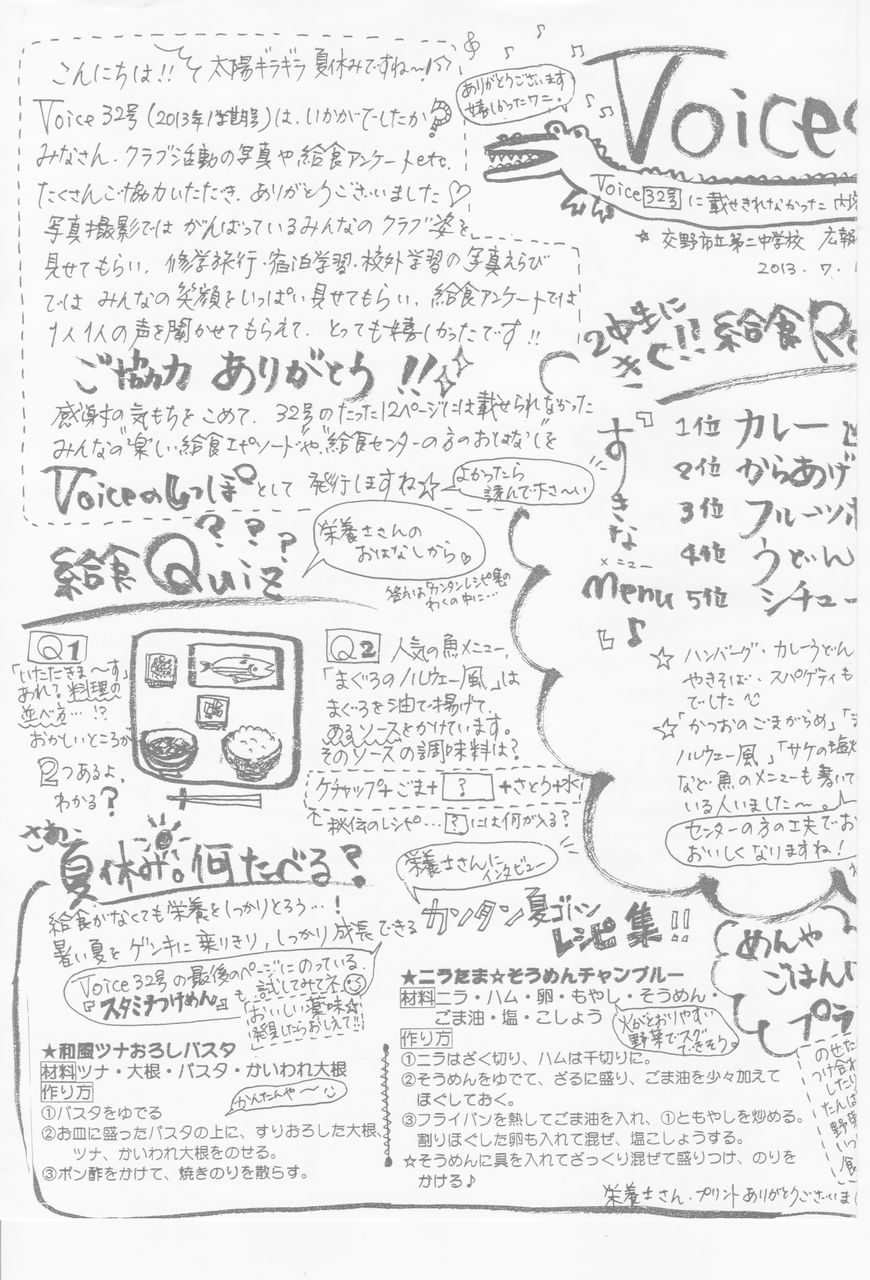 こんにちは!! 太陽ギラギラ 夏休みですね〜!
Voice 32号(2013年1学期号)は、いかがでしたか?
みなさん、クラブ活動の写真や給食アンケートetc.
たくさんご協力いただき、ありがとうございました♡
写真撮影では がんばっているみんなの クラブ姿を
見せてもらい、修学旅行・宿泊学習・校外学習の写真えらび
では みんなの笑顔をいっぱい見せてもらい、給食アンケートでは
1人1人の声を聞かせてもらえて、とっても嬉しかったです!!
ご協力 ありがとう!!
感謝の気もちをこめて、32号のたった12ページには載せられなかった
みんなの楽しい給食エピソードや、給食センターの方のおはなしを
Voiceのしっぽとして 発行しますね☆
よかったら
読んで下さ〜い
ありがとうございます
嬉しかったワニ。
Voice
Voice 32号 に載せきれなかった内
★ 交野市立第二中学校 広報
2013.7.
給食Quiz???
栄養士さんの
おはなしから♡
答えはカンタンレシピ集の
わくの中に…
Q1
「いただきま〜す」
あれ?料理の
並べ方…!?
おかしいところが
2つあるよ、
わかる?
Q2 人気の魚メニュー、
「まぐろのノルウェー風」は
まぐろを油で揚げて、
あるソースをかけています。
そのソースの調味料は?
ケチャップ+ごま+?+さとう+水
秘伝のレシピ…?には何が入る?
2中生に
きく!! 給食R
『すきな
メニュー
Menu』♪
1位 カレー
2位 からあげ
3位 フルーツポ
4位 うどん
5位 シチュー
☆ ハンバーグ・カレーうどん
やきそば・スパゲティも
でした
☆「かつおのごまがらめ」
ノルウェー風」「サケの塩
など魚のメニューも書いて
いる人いました〜。
センターの方の工夫でお
おいしくなりますね!
さあ、
夏休み。何たべる?
給食がなくても栄養をしっかりとろう…!
暑い夏をゲンキに乗りきり、しっかり成長できる
栄養士さんに
インタビュー
カンタン夏ゴハン
レシピ集!!
Voice 32号の最後のページにのっている
『スタミナつけめん』も試してみてネ
おいしい薬味☆
発見したらおしえて!!
★和風ツナおろしパスタ
材料ツナ・大根・パスタ・かいわれ大根
作り方
かんたんや〜
①パスタをゆでる
②お皿に盛ったパスタの上に、すりおろした大根、
ツナ、かいわれ大根をのせる。
③ポン酢をかけて、焼きのりを散らす。
★ニラたま☆そうめんチャンプルー
材料ニラ・ハム・卵・もやし・そうめん・
ごま油・塩・こしょう
火がとおりやすい
野菜でスグ
できそう。
作り方
①ニラはざく切り、ハムは千切りに。
②そうめんをゆでて、ざるに盛り、ごま油を少々加えて
ほぐしておく。
③フライパンを熱してごま油を入れ、①ともやしを炒める。
割りほぐした卵も入れて混ぜ、塩こしょうする。
☆そうめんに具を入れてざっくり混ぜて盛りつけ、のりを
かける♪
めんや
ごはんに
プラ
のせた
つけ合わ
したり
たんぱ
野菜
いっ
食
栄養士さん、プリントありがとうございまし